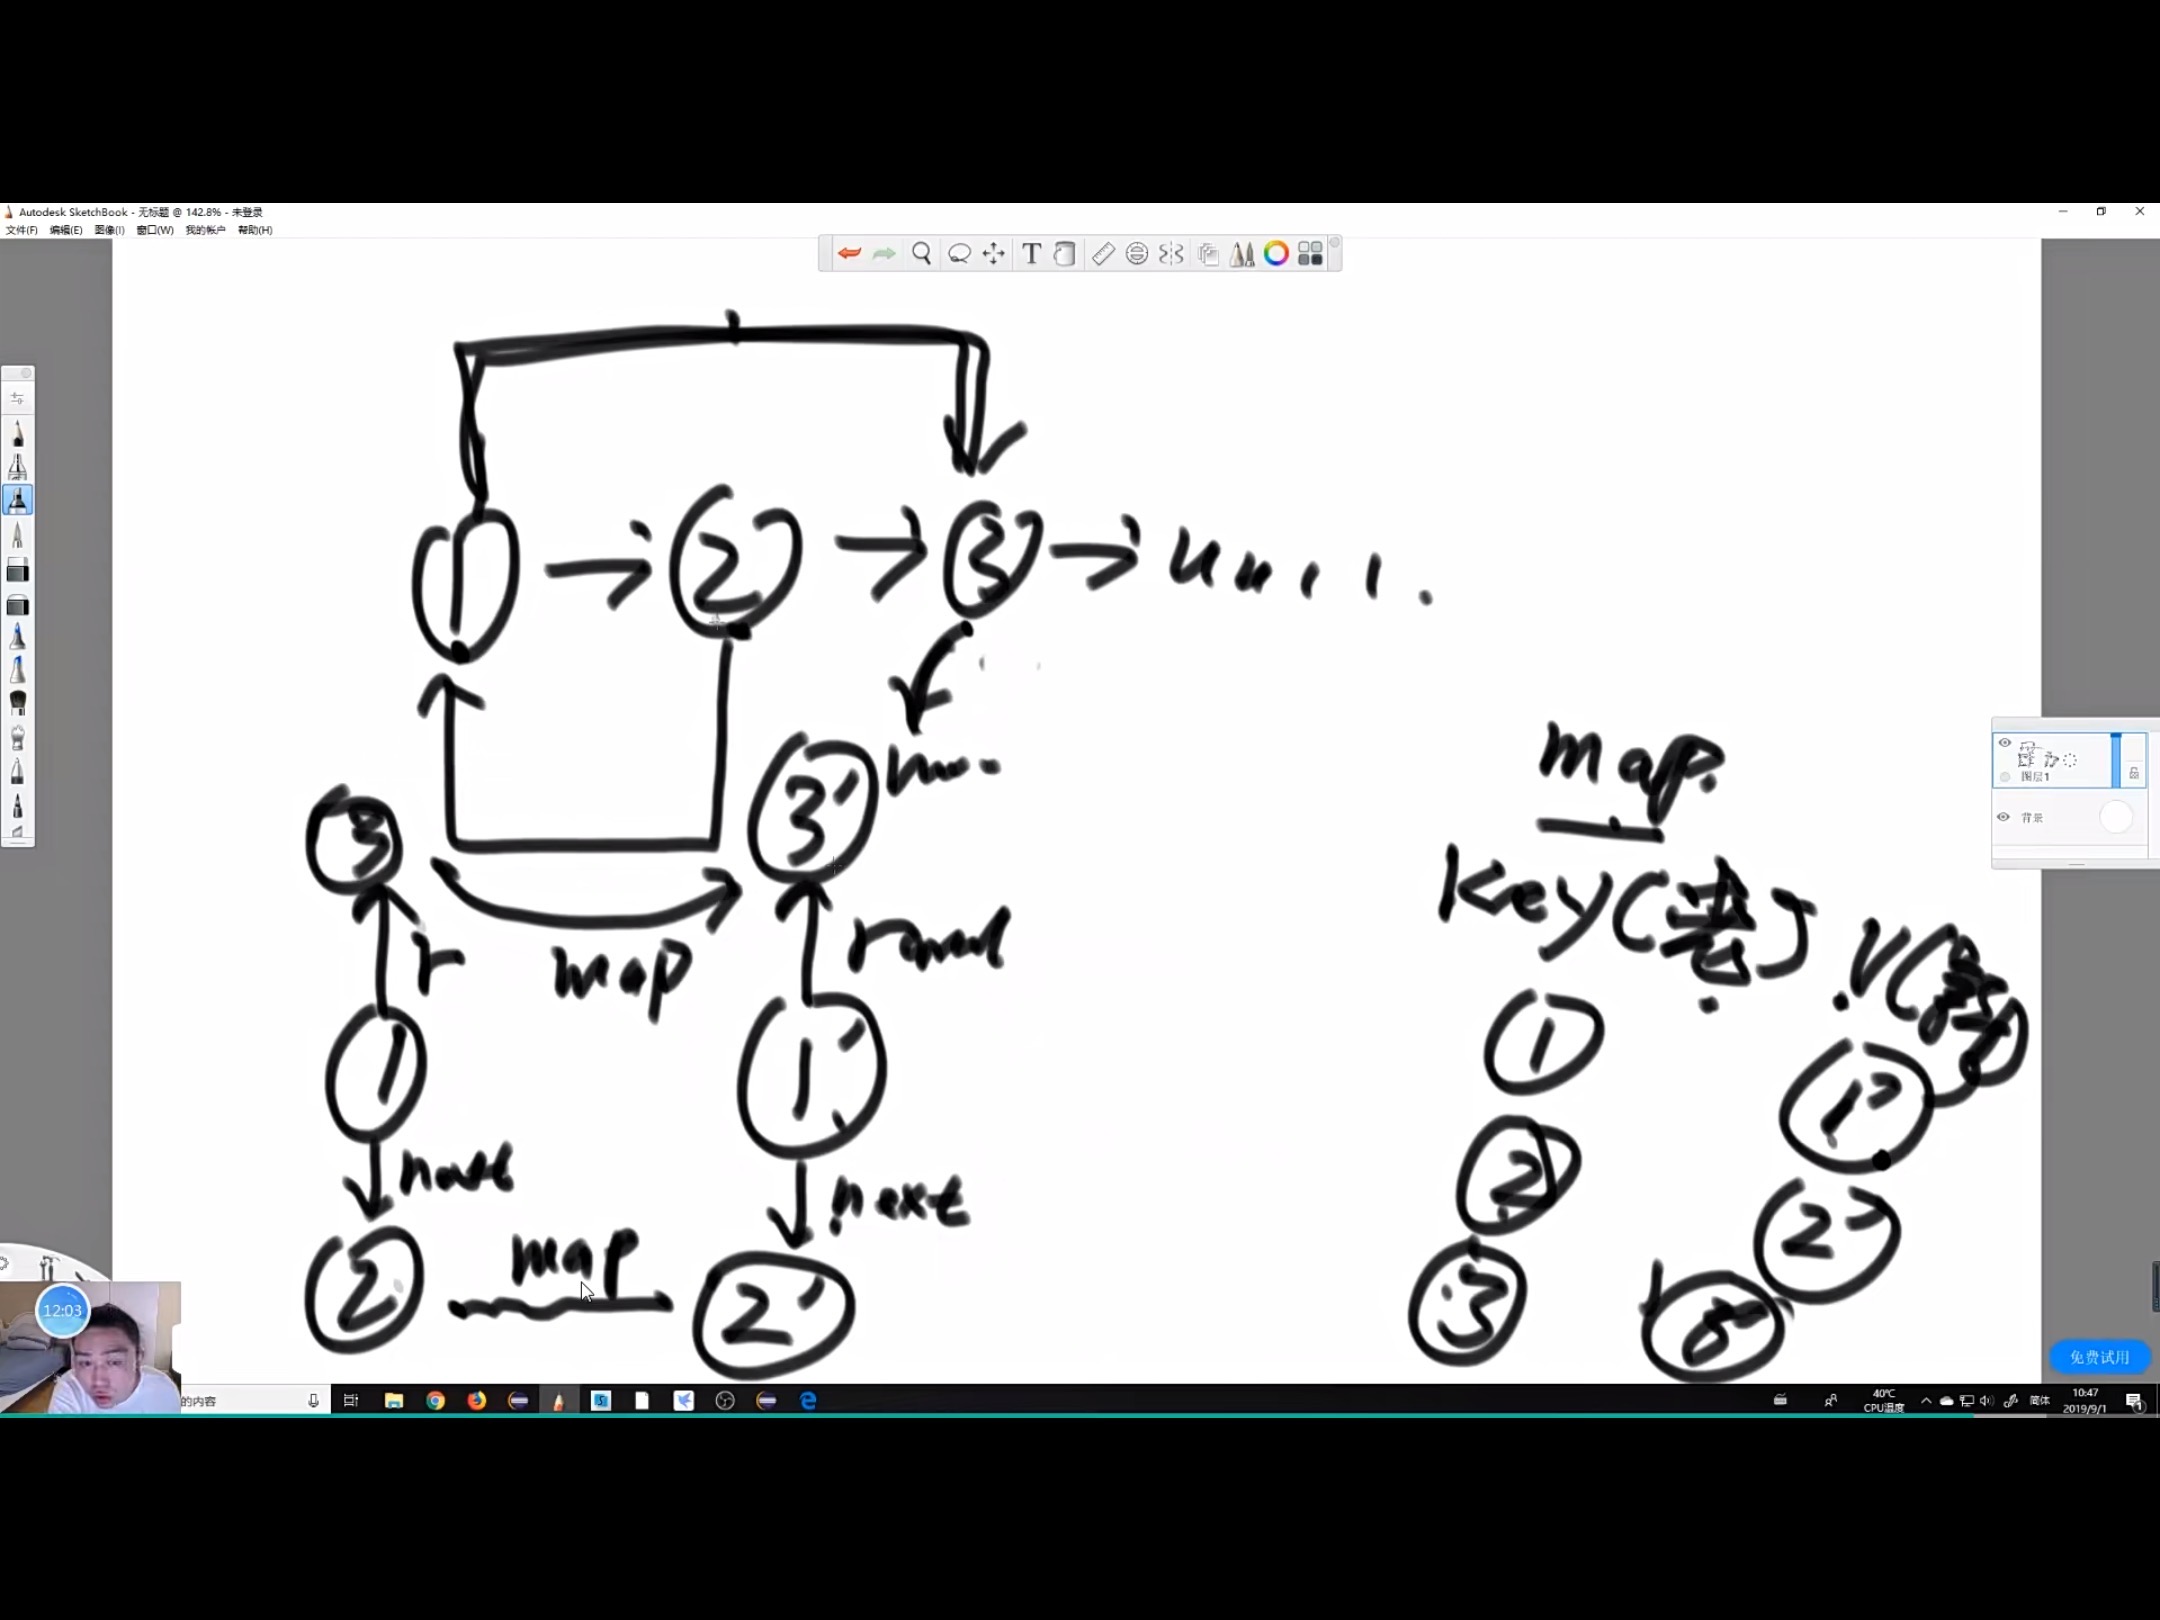 Autodesk SketchBook - 无标题 @ 142.8% - 未登录
文件(F) 编辑(E) 图像(I) 窗口(W) 我的帐户 帮助(H)
T
1 → 2 → 3 → null.
map.
key(老) V(新)
3 3'
r map rand
1 1'
next next
2 map 2'
1 1'
2 2'
3
图层1
背景
免费试用
12:03
的内容
40℃
CPU温度
简体
10:47
2019/9/1
1